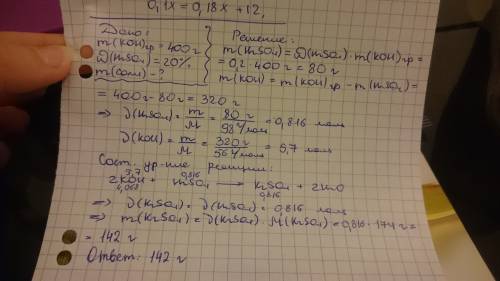 0,1x = 0,18x + 12,
Дано:
m(KOH)гр = 400 г
ω(H2SO4) = 20%
m(соли) - ?
Решение:
m(H2SO4) = ω(H2SO4) · m(KOH)гр =
= 0,2 · 400 г = 80 г
m(KOH) = m(KOH)гр - m(H2SO4) =
= 400 г - 80 г = 320 г
⇒ ν(H2SO4) = m/M = 80 г / 98 г/моль = 0,816 моль
ν(KOH) = m/M = 320 г / 56 г/моль = 5,7 моль
Сост. ур-ние реакции:
5,7 0,816
2KOH + H2SO4 → K2SO4 + 2H2O
0,816
⇒ ν(K2SO4) = ν(H2SO4) = 0,816 моль
⇒ m(K2SO4) = ν(K2SO4) · M(K2SO4) = 0,816 · 174 г =
= 142 г
Ответ: 142 г